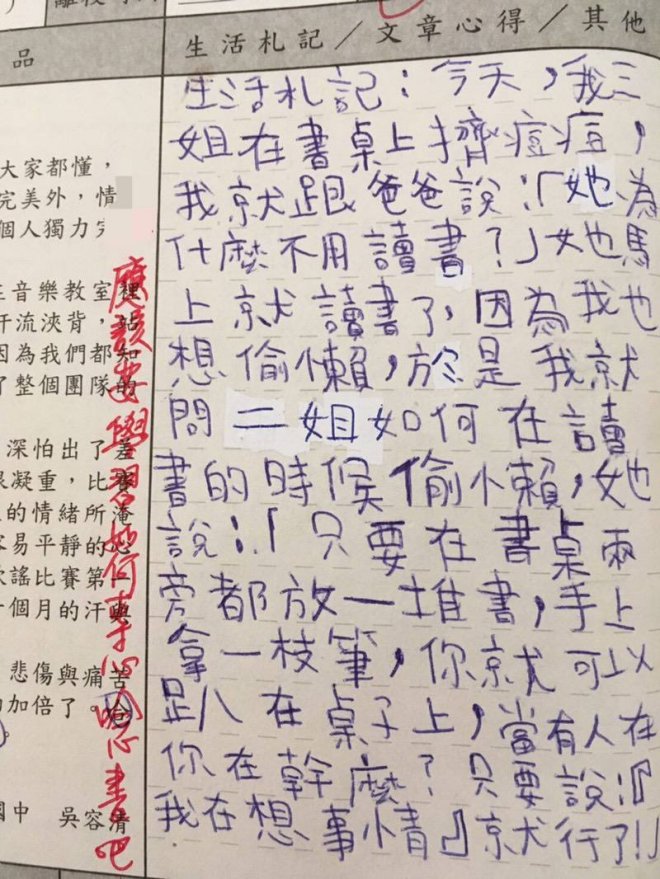 品
生活札記／文章心得／其他
大家都懂，
完美外，情
個人獨力完
音樂教室裡
汗流浹背，站
因為我們都知
了整個團隊的
深怕出了差
凝重，比賽
的情緒所淹
容易平靜的心
謠比賽第一
個月的汗與
悲傷與痛苦
加倍了。
國中　吳容清
應該要學習如何專心唸書吧
生活札記：今天，我三
姐在書桌上擠痘痘，
我就跟爸爸說：「她為
什麼不用讀書？」她馬
上就讀書了，因為我也
想偷懶，於是我就
問二姐如何在讀
書的時候偷懶，她
說：「只要在書桌兩
旁都放一堆書，手上
拿一枝筆，你就可以
趴在桌子上，當有人在
你在幹麼？只要說：『
我在想事情』就行了！」